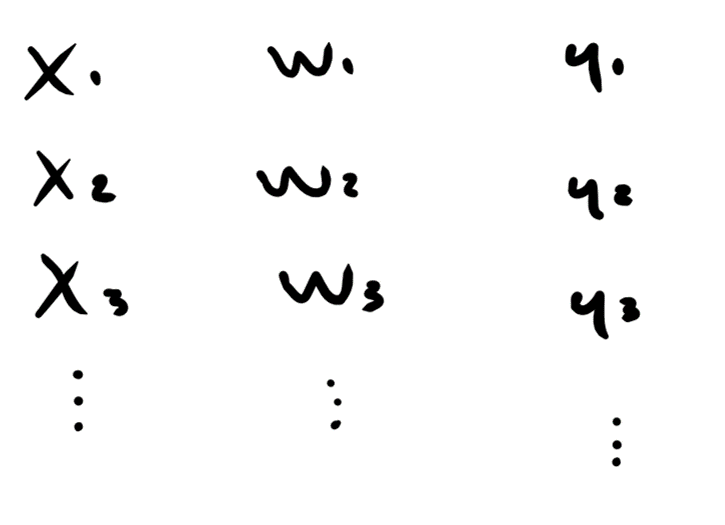 x₁ w₁ y₁
x₂ w₂ y₂
x₃ w₃ y₃
⋮ ⋮ ⋮